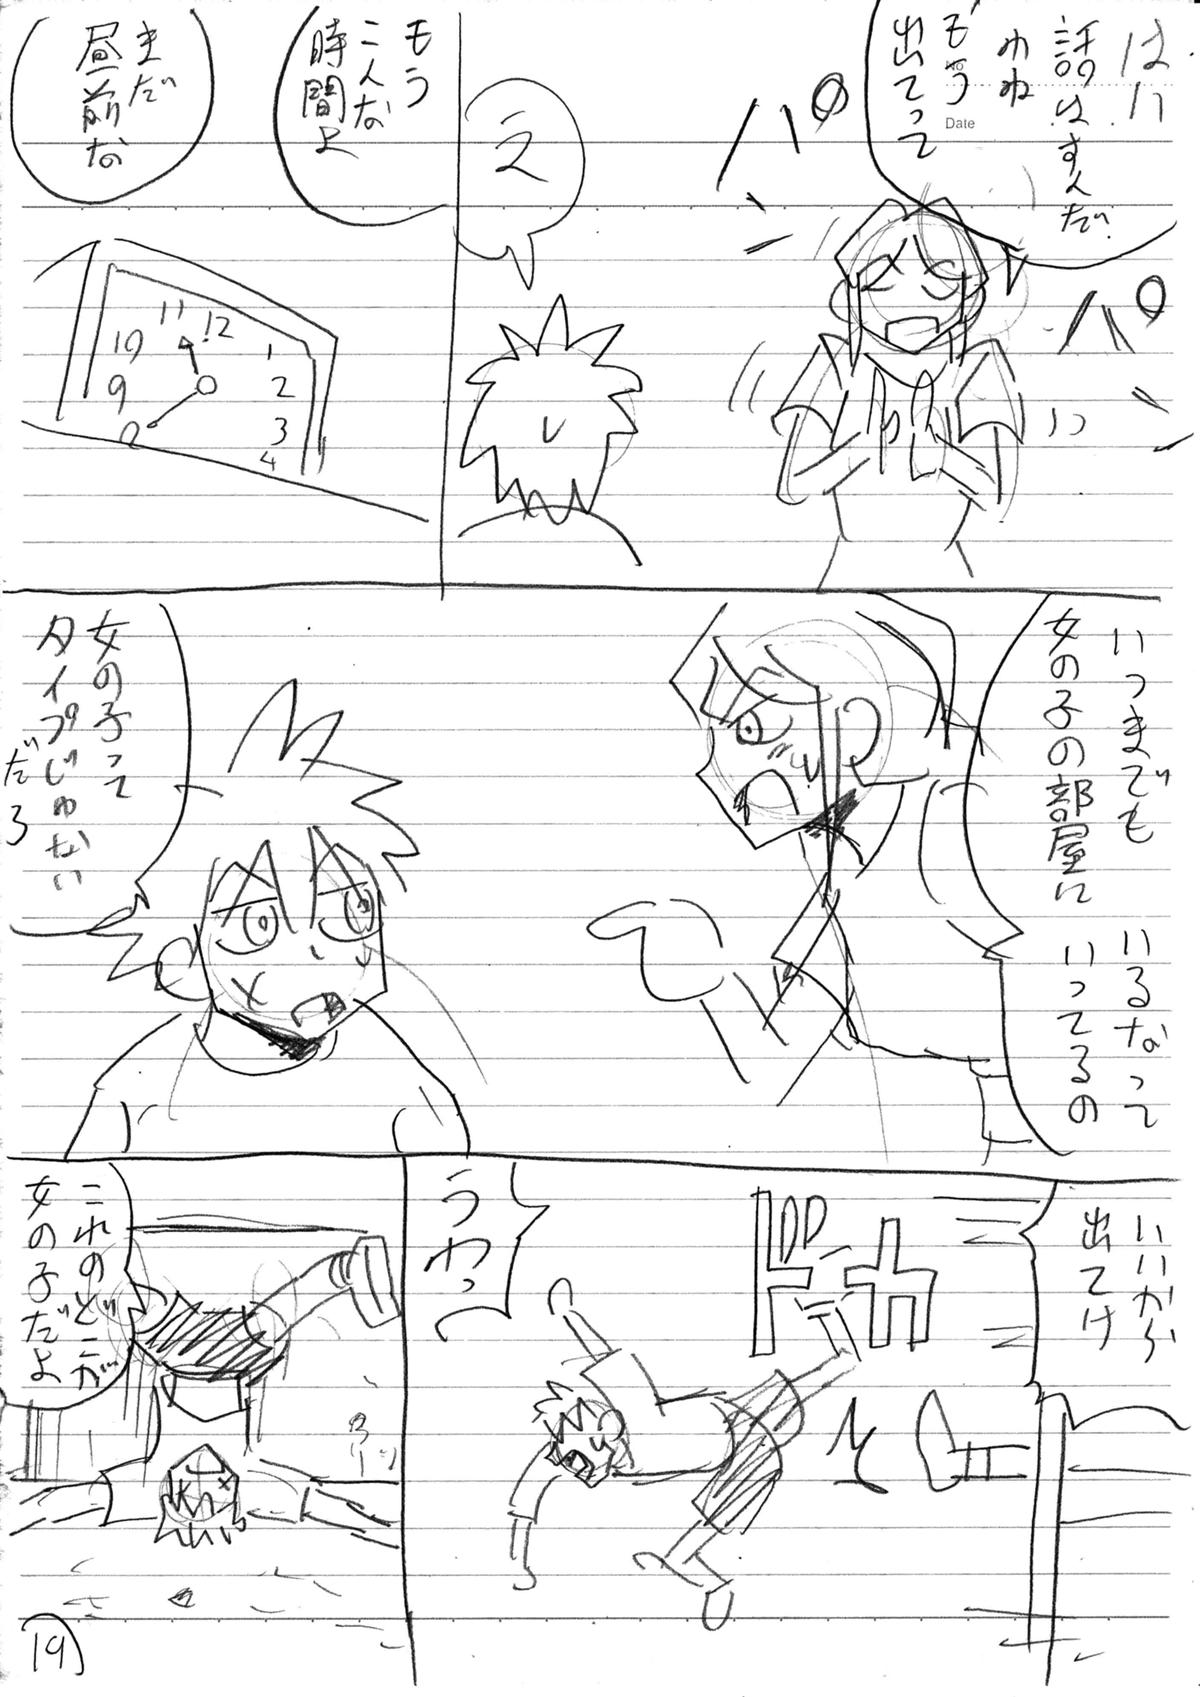 はい
話はすんだ
わね
もう
出てって
No
Date
パ
パ
え
もう
こんな
時間よ
まだ
昼前な
10
11
12
9
8
1
2
3
4
いつまでも
女の子の部屋に
いるなって
いってるの
女の子って
タイプじゃない
だろ
いいから
出てけ
ドカ
うわっ
これのどこが
女の子だよ
19